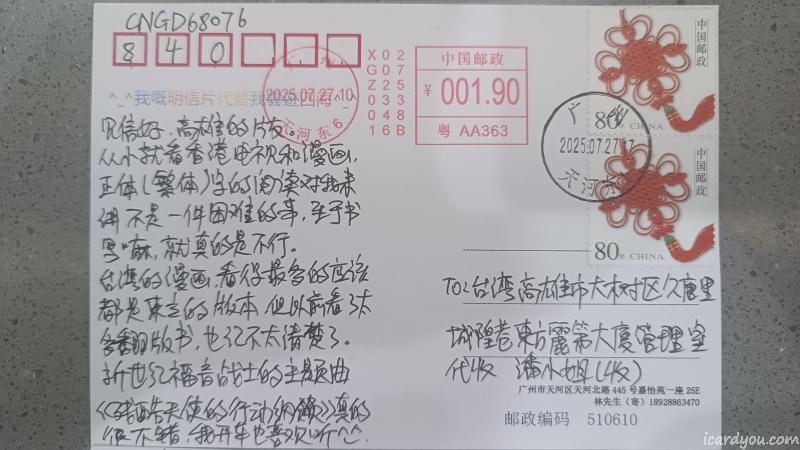 CNGD68076
840
^_^我嘅明信片代替我去遊四海^_^
见信好，高雄的片友。
从小就看香港电视和漫画，
正体（繁体）字的阅读对我来
讲不是一件困难的事，至于书
写嘛，就真的是不行。
台湾的漫画，看得最多的应该
都是东立的版本，但以前看了太
多翻版书，也记不太清楚了。
新世纪福音战士的主题曲
《残酷天使的行动纲领》真的
很不错，我开车也喜欢听
X02
G07
Z25
033
048
16B
中国邮政
¥ 001.90
粤 AA363
广州
2025.07.27.10
天河东6
广州
2025.07.27.17
天河东
中国邮政
80分 CHINA
中国邮政
80分 CHINA
TO：台湾高雄市大树区久唐里
城隍巷東方麗第大厦管理室
代收 潘小姐(收)
广州市天河区天河北路 445 号嘉怡苑一座 25E
林先生（寄）18928863470
邮政编码 510610
icardyou.com